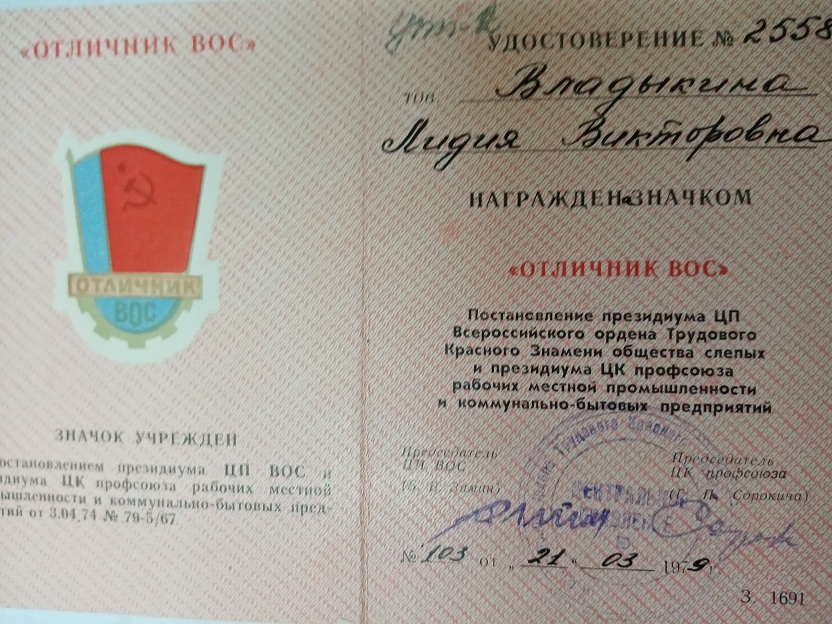 «ОТЛИЧНИК ВОС»
ОТЛИЧНИК
ВОС
ЗНАЧОК УЧРЕЖДЕН
остановлением президиума ЦП ВОС и
идиума ЦК профсоюза рабочих местной
ышленности и коммунально-бытовых пред-
тий от 3.04.74 № 79-5/67
УДОСТОВЕРЕНИЕ № 2558
тов. Владыкина
Лидия Викторовна
НАГРАЖДЕНа ЗНАЧКОМ
«ОТЛИЧНИК ВОС»
Постановление президиума ЦП
Всероссийского ордена Трудового
Красного Знамени общества слепых
и президиума ЦК профсоюза
рабочих местной промышленности
и коммунально-бытовых предприятий
Председатель
ЦП ВОС
(Б. В. Зимин)
Председатель
ЦК профсоюза
(Г. П. Сорокина)
Трудового Красного
ЦЕНТРАЛЬНОЕ
ПРАВЛЕНИЕ
№ 103 от „ 21 “ 03 1979 г.
З. 1691